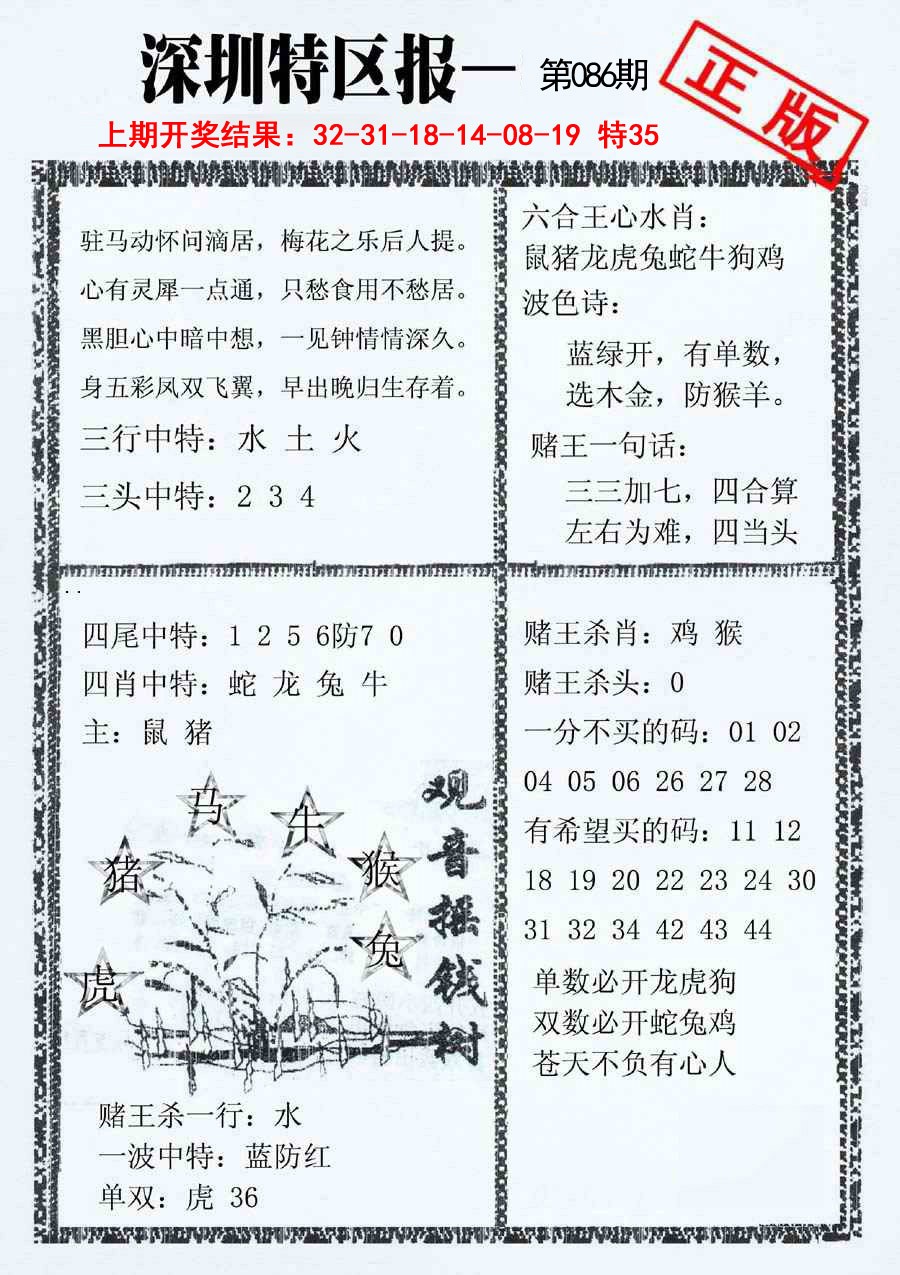 深圳特区报一 第086期
正版
上期开奖结果：32-31-18-14-08-19 特35
驻马动怀问滴居，梅花之乐后人提。
心有灵犀一点通，只愁食用不愁居。
黑胆心中暗中想，一见钟情情深久。
身五彩凤双飞翼，早出晚归生存着。
三行中特：水 土 火
三头中特：2 3 4
六合王心水肖：
鼠猪龙虎兔蛇牛狗鸡
波色诗：
蓝绿开，有单数，
选木金，防猴羊。
赌王一句话：
三三加七，四合算
左右为难，四当头
四尾中特：1 2 5 6防7 0
四肖中特：蛇 龙 兔 牛
主：鼠 猪
马
牛
猪
猴
兔
虎
观音摇钱树
赌王杀一行：水
一波中特：蓝防红
单双：虎 36
赌王杀肖：鸡 猴
赌王杀头：0
一分不买的码：01 02
04 05 06 26 27 28
有希望买的码：11 12
18 19 20 22 23 24 30
31 32 34 42 43 44
单数必开龙虎狗
双数必开蛇兔鸡
苍天不负有心人